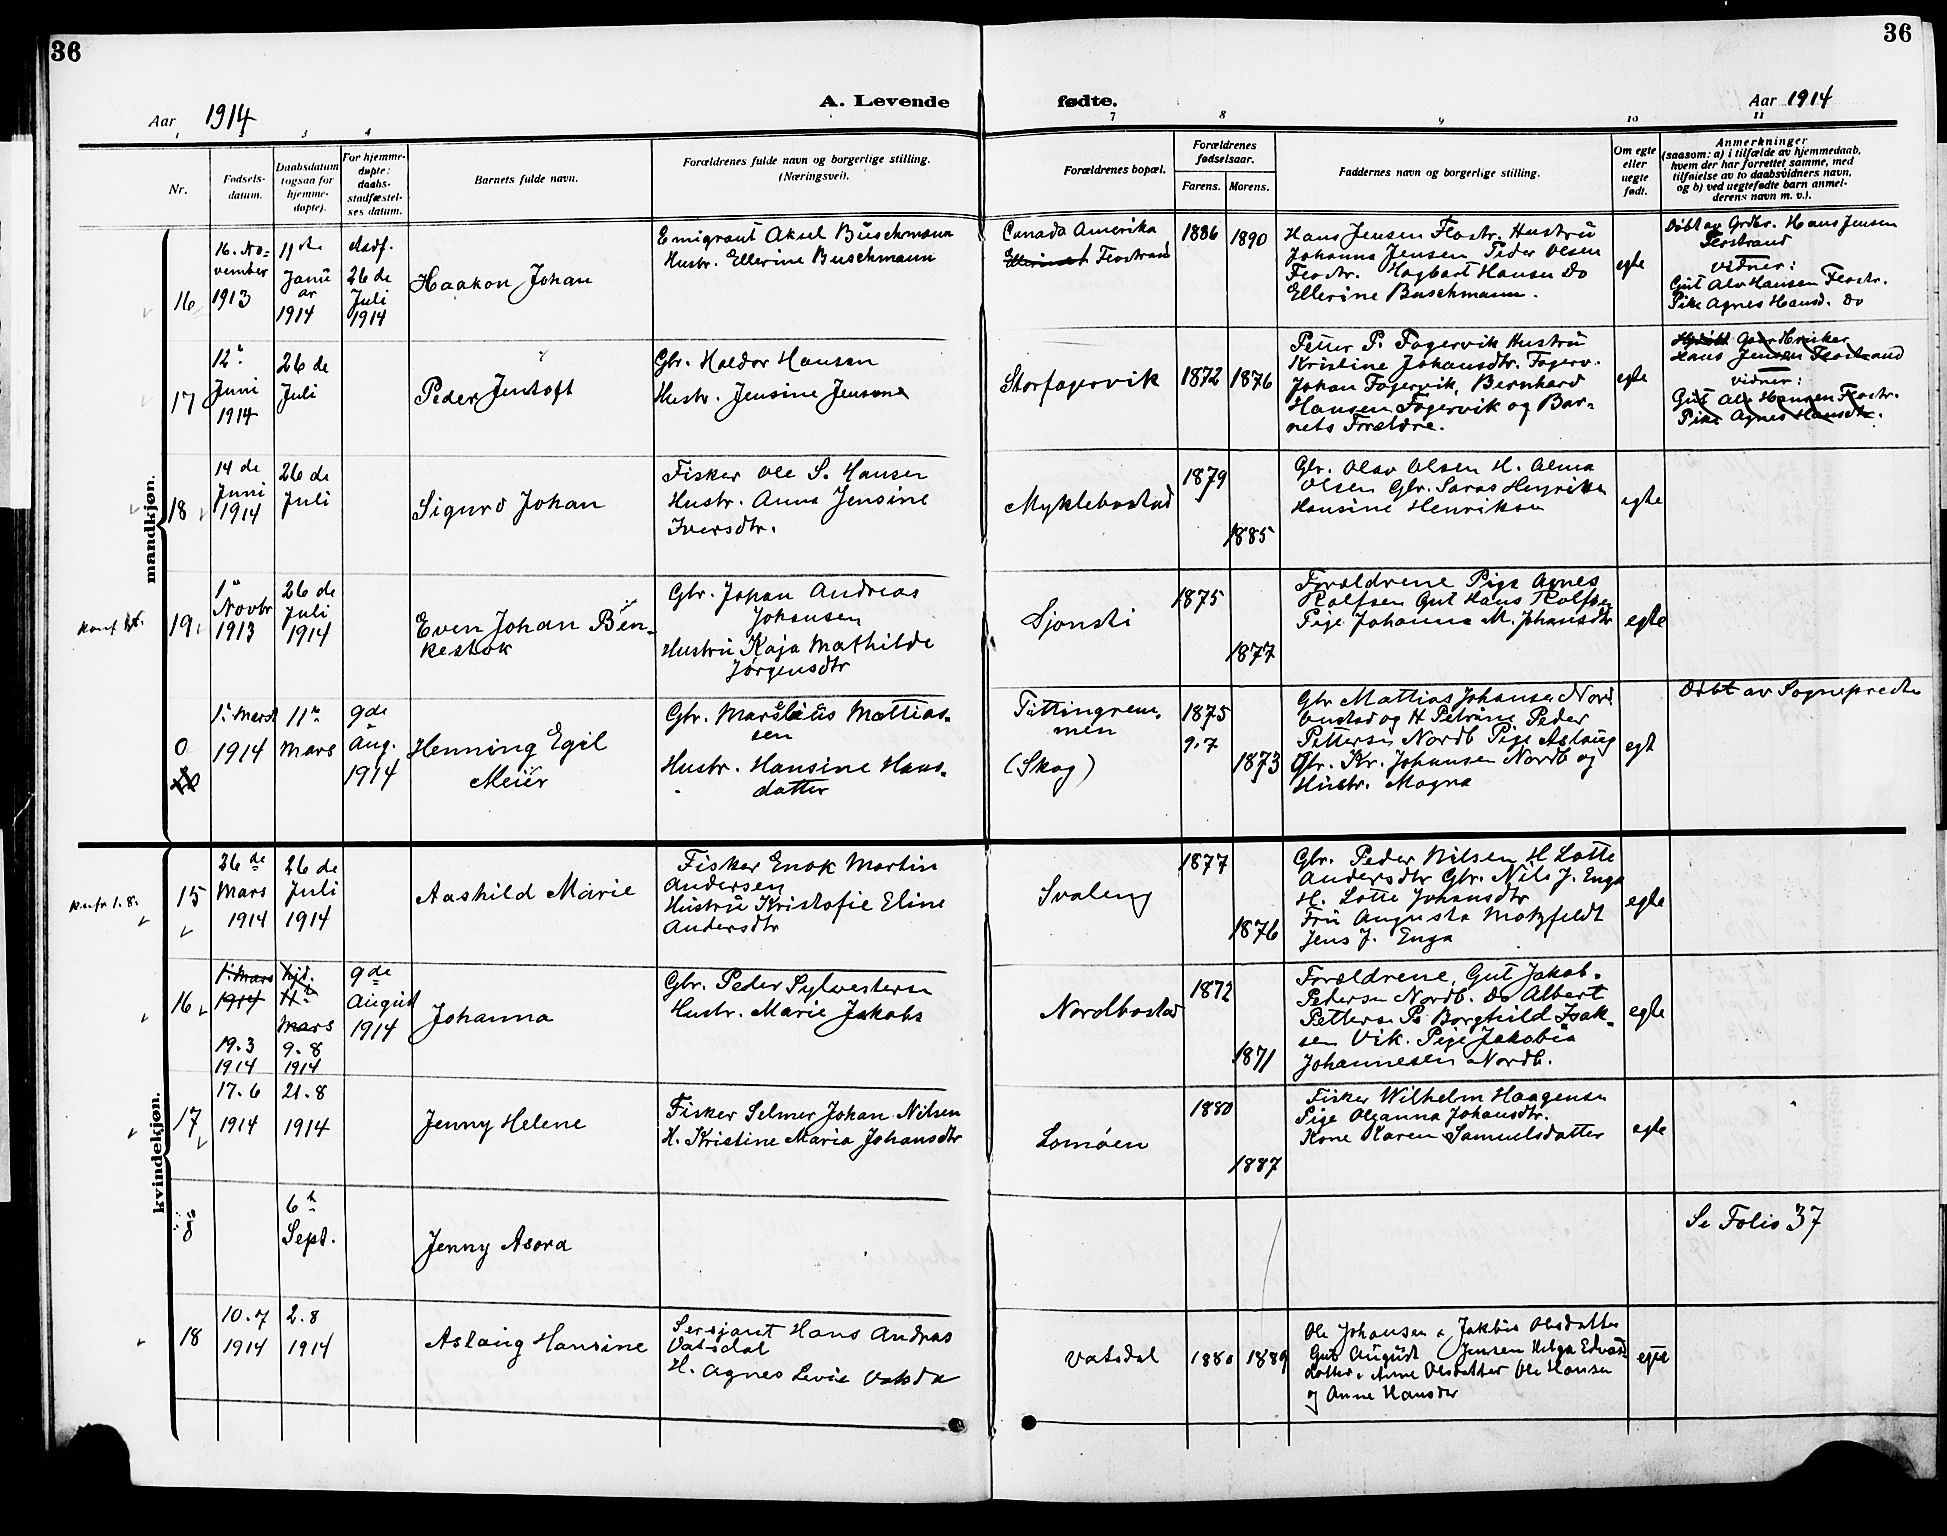 36
36
A. Levende
fødte.
Aar 1914
Aar 1914
1
3
4
7
8
9
10
11
Nr.
Fødsels-
datum.
Daabsdatum
(ogsaa for
hjemme-
døpte).
For hjemme-
døpte:
daabs-
stadfæstel-
ses datum.
Barnets fulde navn.
Forældrenes fulde navn og borgerlige stilling.
(Næringsvei).
Forældrenes bopæl.
Forældrenes
fødselsaar.
Farens.
Morens.
Faddernes navn og borgerlige stilling.
Om egte
eller
uegte
født.
Anmerkninger
(saasom: a) i tilfælde av hjemmedaab,
hvem der har forrettet samme, med
tilføielse av to daabsvidners navn,
og b) ved uegtefødte barn anmel-
derens navn m. v.).
mandkjøn.
16
16. No-
vember
1913
11te
Janu
ar
1914
stadf.
26 de
Juli
1914
Haakon Johan
Emigrant Aksel Buschmann
Hustr. Ellerine Buschmann
Canada Amerika
Flostrand
1886
1890
Hans Jensen Flostr. Hustru
Johanna Jensen Peder Olsen
Flostr. Hagbart Hansen Do
Ellerine Buschmann.
egte
Døbt av Grdbr. Hans Jensen
Flostrand
Vidner:
Gut Alv Hansen Flostr.
Pike Agnes Hansd. Do
17
12te
Juni
1914
26 de
Juli
Peder Jentoft
Gbr. Haldor Hansen
Hustr. Jensine Jensen
Storfagervik
1872
1876
Petter P. Fagervik Hustru
Kristine Johansdtr. Fagerv.
Johan Fagervik, Bernhard
Hansen Fagervik og Bar-
nets Forældre.
egte
Hans Jensen Flostrand
vidner:
Gut Alv Hansen Flostr.
Pike Agnes Hansdtr.
18
14 de
Juni
1914
26 de
Juli
Sigurd Johan
Fisker Ole S. Hansen
Hustr. Anna Jensine
Iversdtr.
Myklebostad
1879
1885
Gbr. Olav Olsen H. Alma
Olsen Gbr. Saras Henriksen
Hansine Henriksen
egte
19
1
Novbr
1913
26 de
Juli
1914
Even Johan Ben-
kestok
Gbr. Johan Andreas
Johansen
Hustru Kaja Mathilde
Jørgensdtr
Sjonsti
1875
1877
Forældrene Pige Agnes
Rolfsen Gut Hans Rolfsen
Pige Johanna M. Johansdtr
egte
0
20
1. Mars
1914
11te
Mars
9de
Aug.
1914
Henning Egil
Meier
Gbr. Marselius Mattias-
sen
Hustr. Hansine Hans-
datter
(Skog)
1875
9.7
1873
Gbr Mattias Johansen Nord
bostad og H Petrine Peder
Pettersen Nordb Pige Aslaug
Gbr. Kr. Johansen Nordb og
Hustr. Magna
egt
Døbt av Sognepresten
kvindekjøn.
konf 1.8.
15
26 de
Mars
1914
26 de
Juli
1914
Aashild Marie
Fisker Enok Martin
Andersen
Hustru Kristofie Eline
Andersdtr
Svaleng
1877
1876
Gbr. Peder Nilsen H Lotte
Andersdtr Gbr. Nils J. Enga
H. Lotte Johansdtr
Fru Augusta Motzfeldt
Jens J. Enga
egte
16
1. Mars
1914
hjd.
11te
Mars
9de
August
1914
19.3
1914
9.8
1914
Johanna
Gbr. Peder Sylvestersen
Hustr. Marie Jakobs
Nordbostad
1872
1871
Forældrene, Gut Jakob
Pedersen Nordb. Do Albert
Petterse Pi Borghild Isak-
sen Vik. Pige Jakobia
Johannesen Nordb.
egte
17
17.6
1914
21.8
1914
Jenny Helene
Fisker Selmer Johan Nilsen
H. Kristine Maria Johansdtr
Lomøen
1880
1887
Fisker Wilhelm Haagensen
Pige Oleanna Johansdtr.
Kone Karen Samuelsdatter
egte
8
6te
Sept.
Jenny Asora
Se Folio 37
18
10.7
1914
2.8
1914
Aslaug Hansine
Sersjant Hans Andreas
Vatsdal
H. Agnes Levie Vatsdal
Vatsdal
1880
1889
Ole Johansen & Jakbie Olsdatter
Gut August Jensen Helga Edvards
datter, Anne Olsdatter Ole Hansen
og Anne Hansdtr
egte